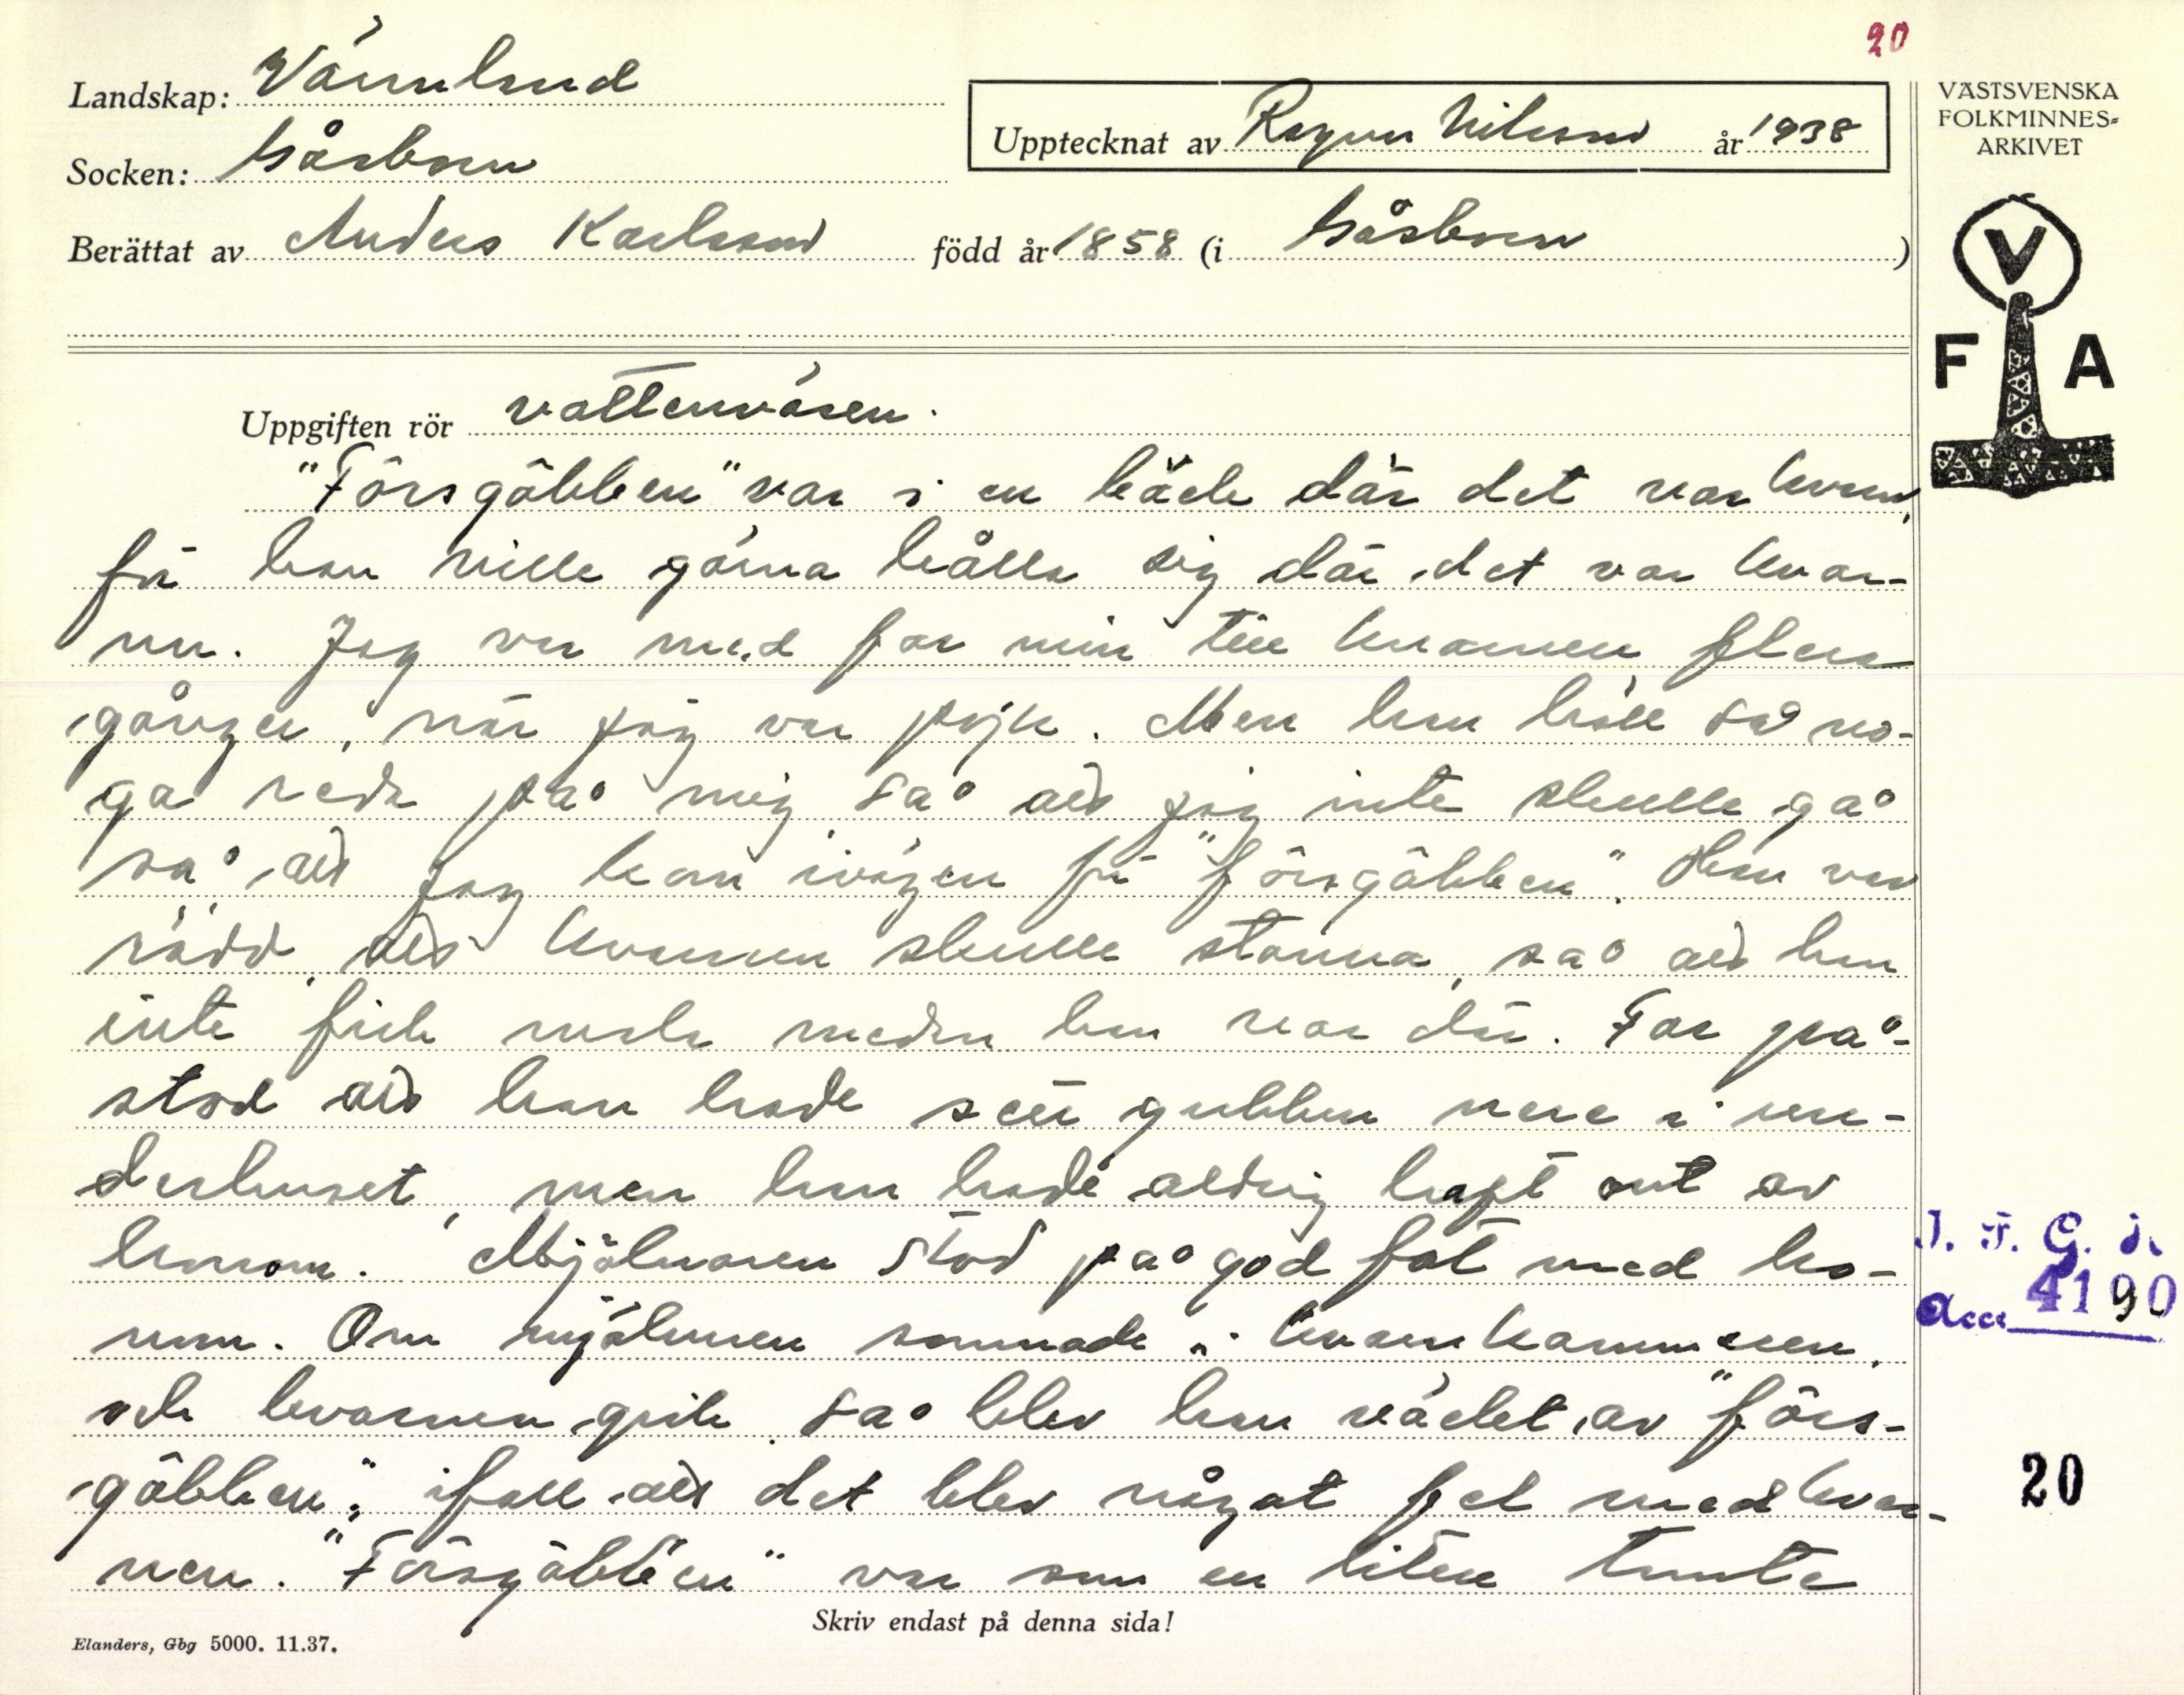 20
Landskap: Värmland
Upptecknat av Ragnar Nilsson år 1938
VÄSTSVENSKA
FOLKMINNES=
ARKIVET
Socken: Gåsborn
Berättat av Anders Karlsson född år 1858 (i Gåsborn)
V
F A
Uppgiften rör vattenväsen.
"Fôrsgôbben" var i en bäck där det var kvarn,
för han ville gärna hålla sig där det var kvar-
nar. Jag var med far min till kvarnen flera
gånger, när jag var pojk. Men han höll så no-
ga reda på mig så att jag inte skulle gå
så att jag kom ivägen för "fôrsgôbben". Han var
rädd, att kvarnen skulle stanna, så att han
inte fick mala medan han var där. Far på-
stod att han hade sett gubben nere i un-
derhuset, men han hade aldrig haft ont av
honom. Mjölnaren stod på god fot med ho-
nom. Om mjölnaren somnade i kvarnkammaren,
och kvarnen gick så blev han väckt av "fôrs-
gôbben", ifall att det blev något fel med kvar-
nen. "Fôrsgôbben" var som en liten tomte
J. F. G. s.
Acc. 4190
20
Skriv endast på denna sida!
Elanders, Gbg 5000. 11.37.